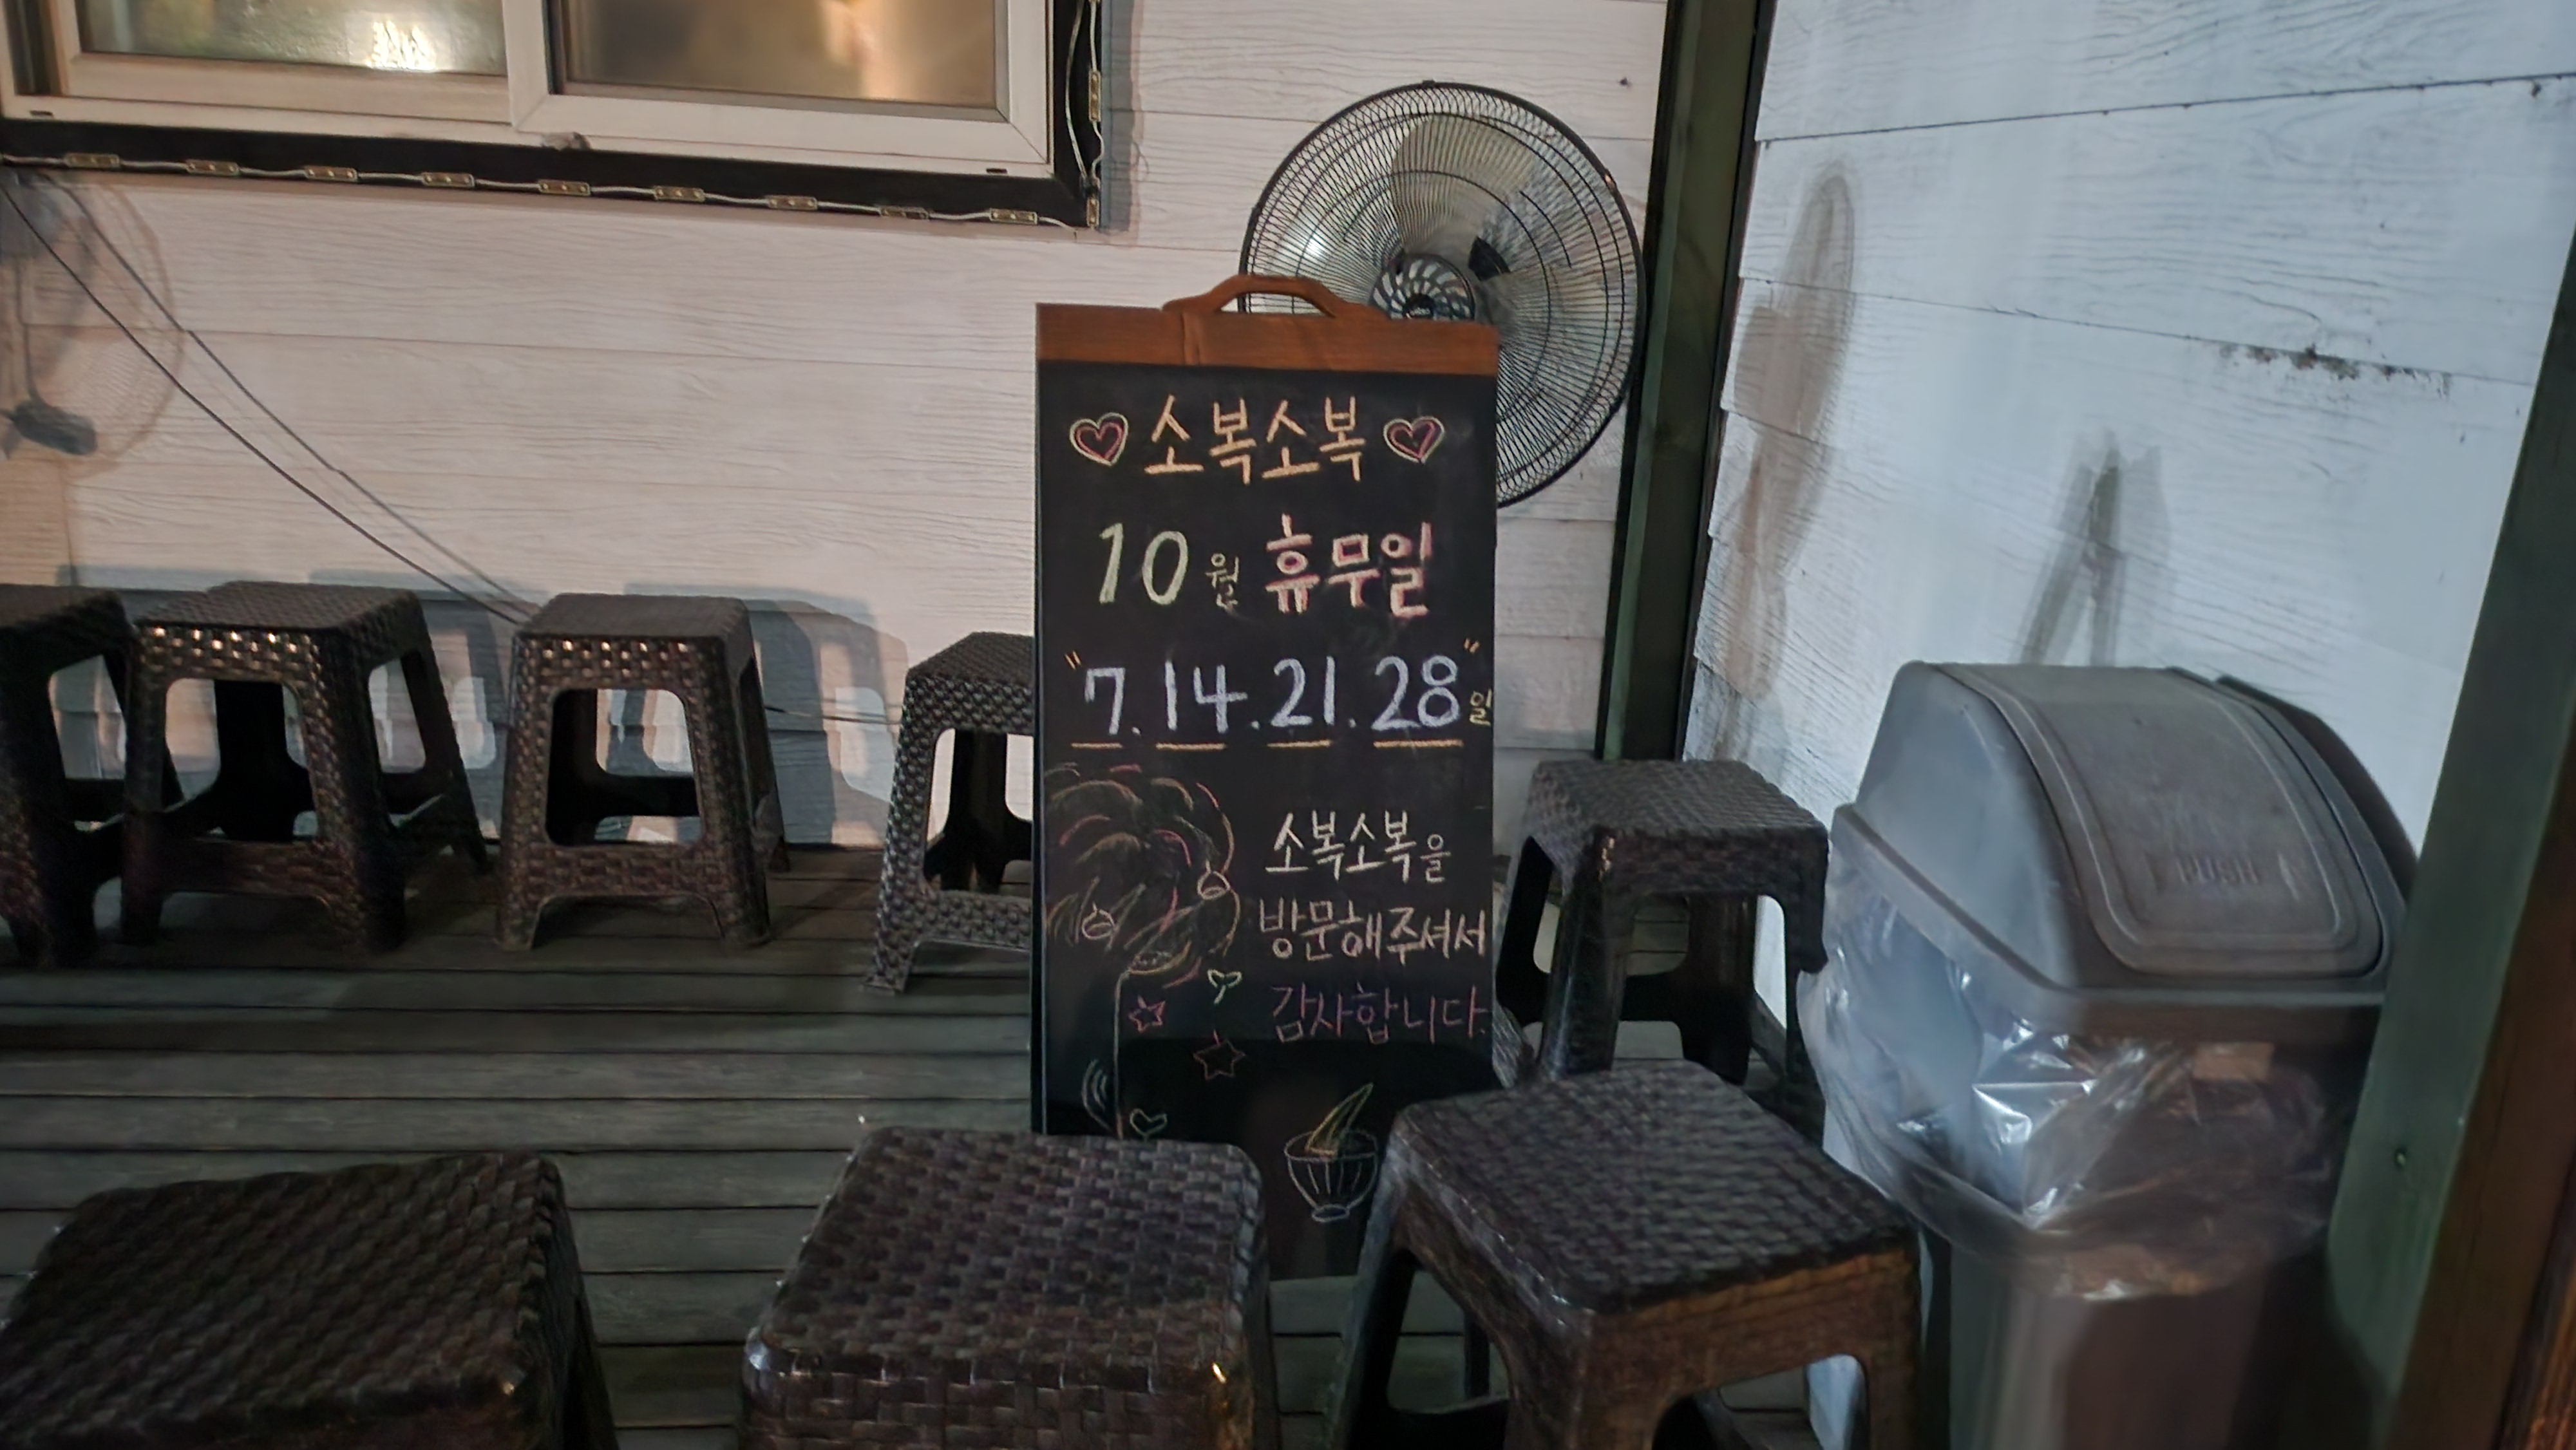 소복소복
10월 휴무일
"7.14.21.28"일
소복소복을
방문해주셔서
감사합니다.
PUSH